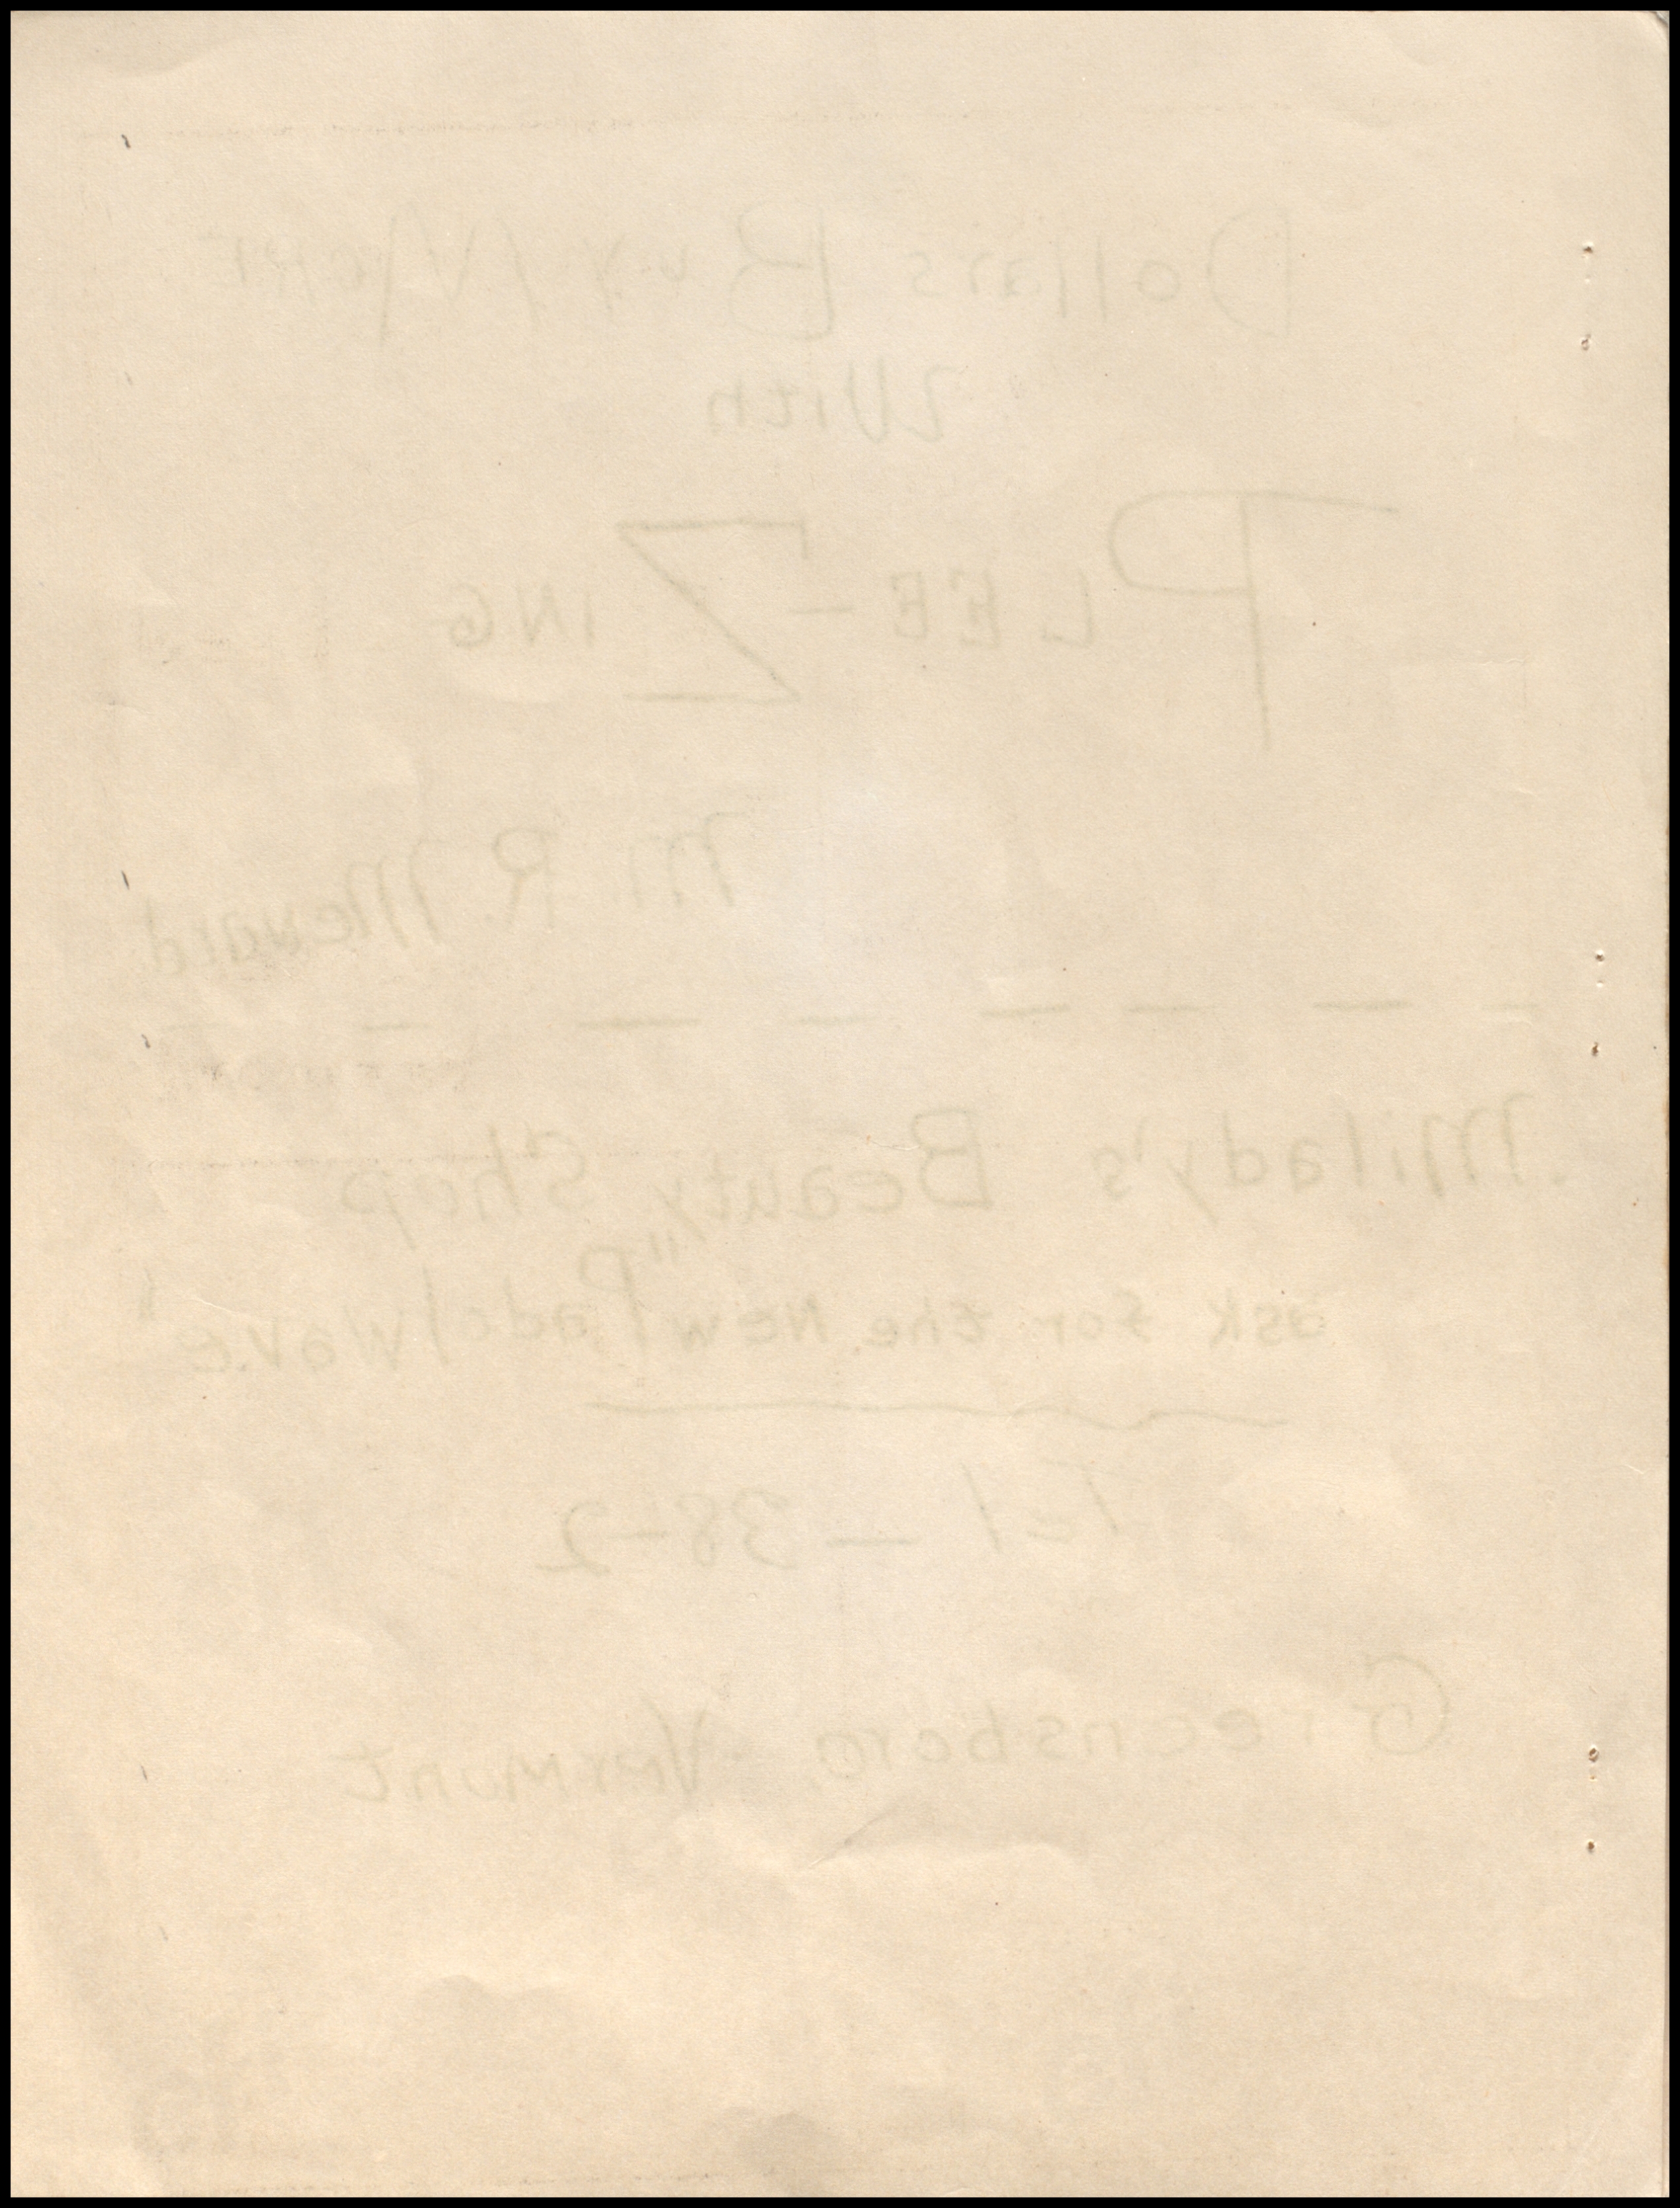 Dollars Buy More
With
PLEE-ZING
M. R. Menard
Milady's Beauty Shop
ask for the New "Padel Wave"
Tel — 38-2
Greensboro Vermunt